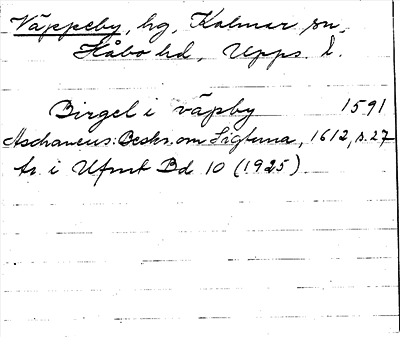 Väppeby, hg, Kalmar sn,
Håbo hd, Upps. l.
Birgel i väpby 1591
Aschaneus: Beskr. om Sigtuna, 1612, s. 27
tr. i Ufmt Bd 10 (1925)